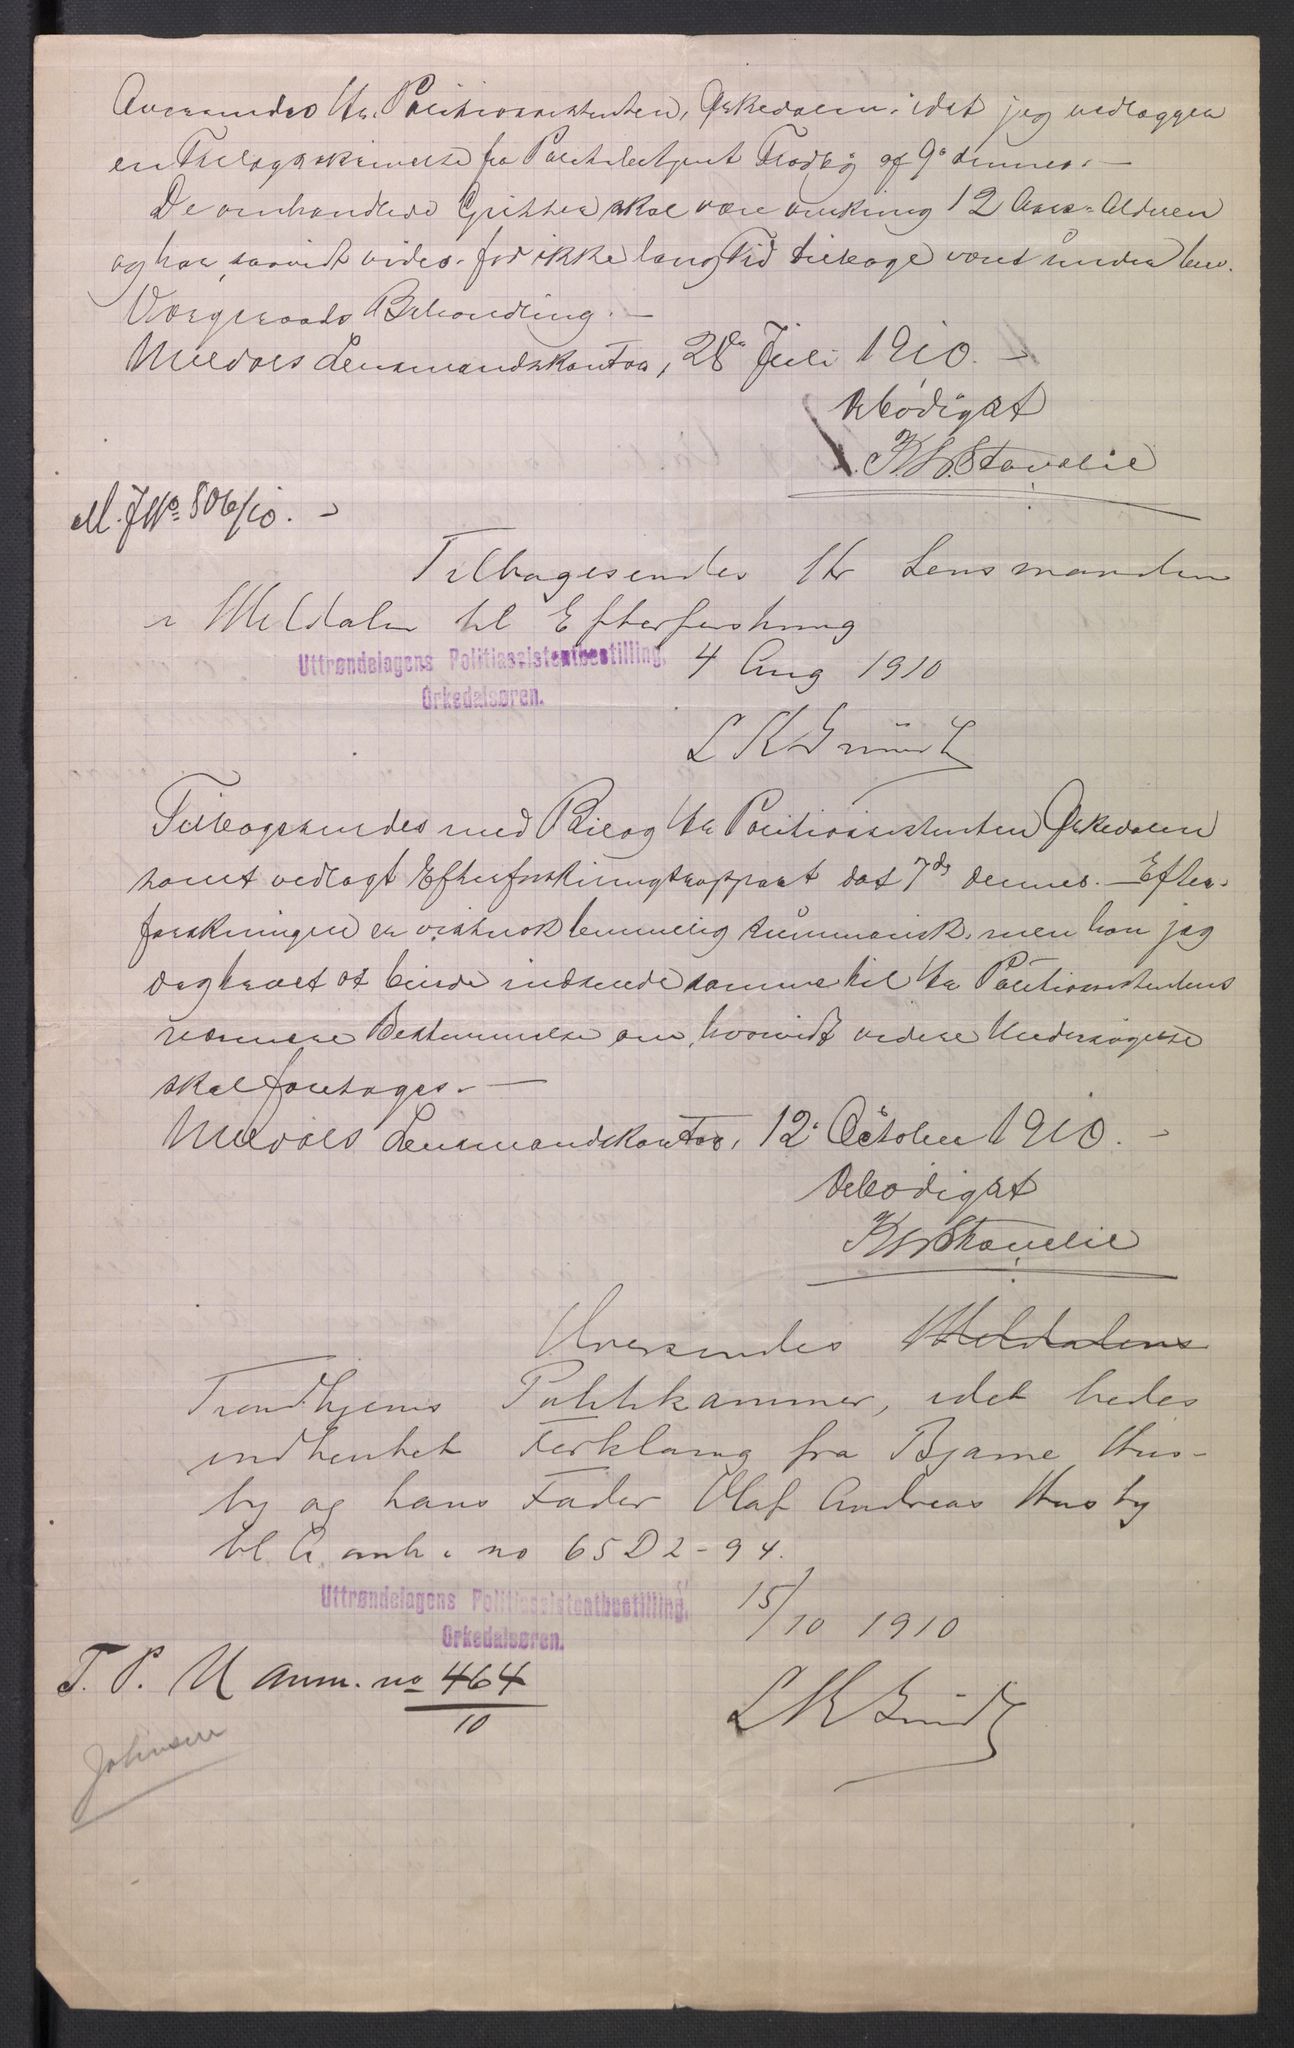 Oversendes Hr. Politiassistenten, Orkedalen, idet jeg vedlægger
en Tillægsskrivelse fra Politibetjent af 9de dennes. —
De omhandlede Gutter skal være omkring 12 Aars-Alderen
og har saavidt vides for ikke lang Tid tilbage været under
Værgeraads Behandling. —
Meldals Lensmandskontor, 28de Juli 1910. —
Ærbødigst
M. J No 806/10. —
Tilbagesendes Hr Lensmanden
i Meldalen til Efterforskning
Uttrøndelagens Politiassistentbestilling, 4 Aug 1910
Orkedalsøren.
Tilbagesendes med Bilag Hr Politiassistenten Orkedalen
samt vedlagt Efterforskningsrapport dat 7de dennes. — Efter-
forskningen er vistnok temmelig summarisk, men har jeg
dog troet at burde indsende samme til Hr Politiassistentens
nærmere Bestemmelse om, hvorvidt videre Undersøgelse
skal foretages. —
Meldals Lensmandskontor, 12te October 1910. —
Ærbødigst
Oversendes Meldalens
Trondhjems Politikammer, idet bedes
indhentet Forklaring fra Bjarne Hus-
by og hans Fader Olaf Andreas Husby
no 65 D 2 - 94.
Uttrøndelagens Politiassistentbestilling, 15/10 1910
Orkedalsøren.
T. P. U anm. no 464
10
Johnsen